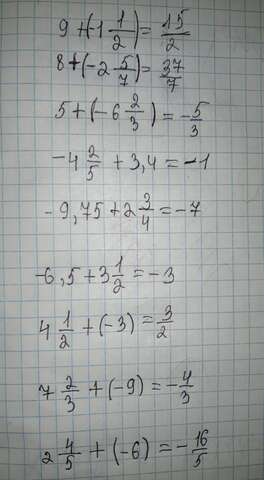 9 + (-1 1/2) = 15/2
8 + (-2 5/7) = 37/7
5 + (-6 2/3) = -5/3
-4 2/5 + 3,4 = -1
-9,75 + 2 3/4 = -7
-6,5 + 3 1/2 = -3
4 1/2 + (-3) = 3/2
7 2/3 + (-9) = -4/3
2 4/5 + (-6) = -16/5